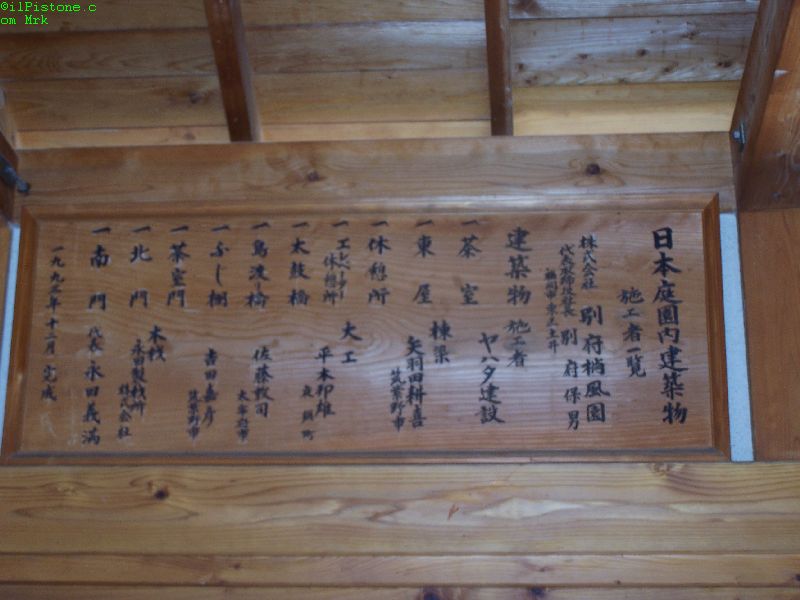 ©ilPistone.c
om Mrk
日本庭園内建築物
施工者一覧
株式会社 別府梢風園
代表取締役社長 別府保男
建築物 施工者
一茶室 ヤハタ建設
一東屋 棟梁
矢羽田耕喜
筑紫野市
一休憩所
一エレベーター
休憩所 大工
一太鼓橋 平木卯雄
一鳥渡橋 佐藤牧司
太宰府市
一ふじ棚 吉田嘉彦
筑紫野市
一茶室門
一北門 木材
永田製材所
株式会社
一南門 代表 永田義満
一九九二年十二月完成